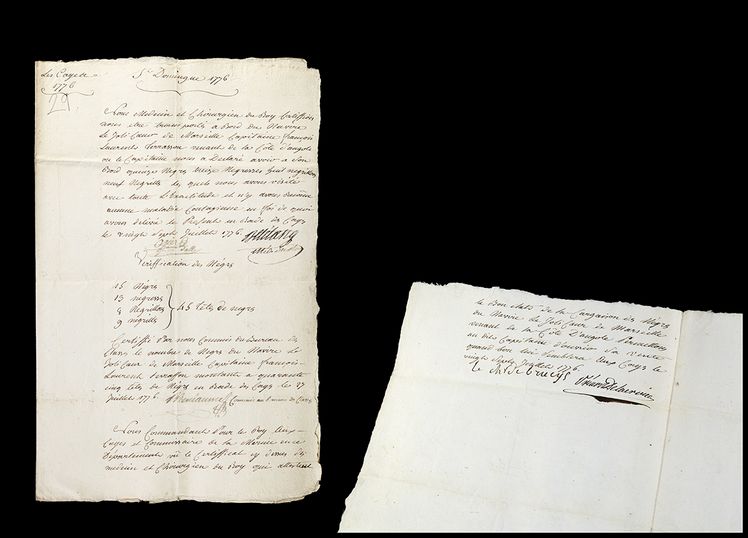 Les Cayes =
1776
29
St Domingue 1776
Nous Medecin et Chirurgien du Roy Certifions
nous etre transportés a Bord du Navire
Le Joli Cœur de Marseille Capitaine françois
Laurents Terrasson venant de la Côte d'angole
ou le Capitaine nous a Declaré avoir a son
Bord quinze Negrs treize Negresses huit negrillons
neuf Negrittes les quels nous avons visité
avec toute L'Exactitude et n'y avons
aucune maladie Contagieuse en foi de quoi
avons delivré le Present en Rade des Cays
le vingt Sept Juillet 1776
Veriffication des Négrs
15 Négrs
13 negresses
8 Negrillons
9 negritts
45 têts de negrs
Certiffié Par nous Commis du Bureau des
Classs le nombre de Negrs du Navire Le
Joli Cœur de Marseille Capitaine françois
Laurent Terrasson montants a quarante
cinq têts de Négrs en Rade des Cays le 27
Juillet 1776
Commis au Bureau des Classs
Nous Commandant Pour le Roy Aux
Cayes et Commissaire de la Marine en ce
Departement vû le Certifficat cy dessus des
medecin et Chirurgien du Roy qui attestent
le Bon états de la Cargaison des Négrs
du Navire le Joli Cœur de Marseille
venant de la Côte d'angole Permettons
au dits Capitaine d'ouvrir Sa vente
quand bon lui Semblera aux Cayes le
vingts Septs Juillets 1776